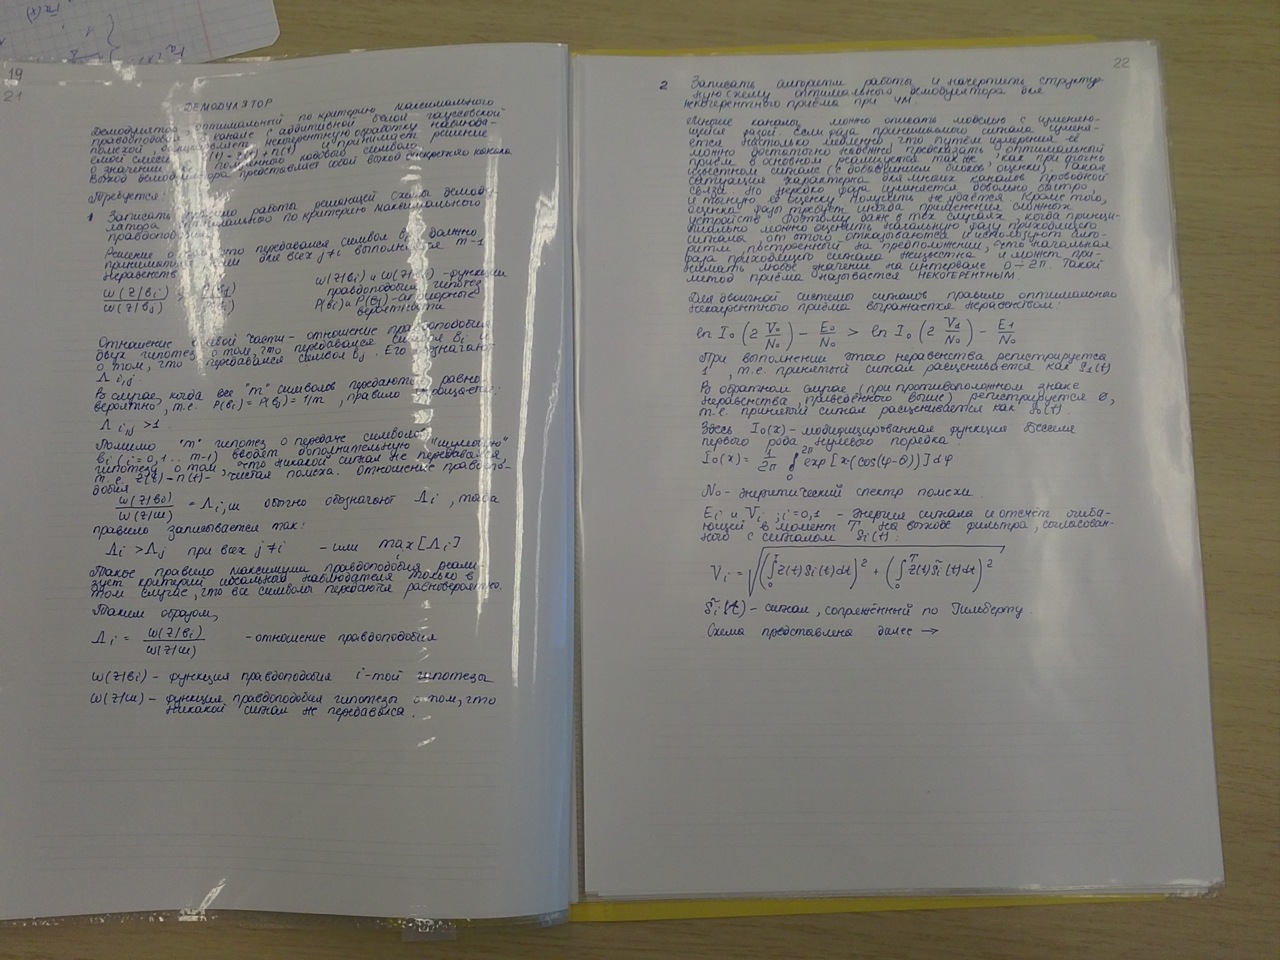 19
21
ДЕМОДУЛЯТОР
Демодулятор оптимальный по критерию максимального
правдоподобия в канале с аддитивной белой гауссовской
помехой, осуществляет некогерентную обработку наблюда-
емой смеси z(t) = s(t) + n(t) и принимает решение
о значении полученного кодового символа.
Выход демодулятора представляет собой выход дискретного канала
Требуется:
1 Записать правило работы решающей схемы демоду-
лятора оптимального по критерию максимального
правдоподобия
Решение о том, что передавался символ bi должно
приниматься если для всех j≠i выполняются m-1
неравенств
ω(z/bi) / ω(z/bj) > P(bj) / P(bi)
ω(z/bi) и ω(z/bj) - функции
правдоподобия гипотез
P(bi) и P(bj) - априорные
вероятности
Отношение в левой части - отношение правдоподобия
двух гипотез о том, что передавался символ bi и
о том, что передавался символ bj. Его обозначают
Λi,j.
В случае, когда все "m" символов передаются равно-
вероятно, т.е. P(bi) = P(bj) = 1/m, правило упрощается:
Λi,j >1
Помимо "m" гипотез о передаче символов
bi (i=0,1... m-1) вводят дополнительную "шумовую"
гипотезу о том, что никакой сигнал не передавался,
т.е. z(t) = n(t) - чистая помеха. Отношение правдопо-
добия
ω(z/bi) / ω(z/ш) = Λi,ш обычно обозначают Λi, тогда
правило записывается так:
Λi > Λj при всех j≠i - или max[Λi]
i
Такое правило максимума правдоподобия реали-
зует критерий идеального наблюдателя только в
том случае, что все символы передаются равновероятно.
Таким образом,
Λi = ω(z/bi) / ω(z/ш) - отношение правдоподобия
ω(z/bi) - функция правдоподобия i-той гипотезы
ω(z/ш) - функция правдоподобия гипотезы о том, что
никакой сигнал не передавался.
22
2 Записать алгоритм работы и начертить структур-
ную схему оптимального демодулятора для
некогерентного приёма при ЧМ.
Многие каналы можно описать моделью с изменяю-
щейся фазой. Если фаза принимаемого сигнала изменя-
ется настолько медленно, что путём измерения её
можно достаточно надежно предсказать, оптимальный
приём в основном реализуется так же, как при точно
известном сигнале (с добавлением блоков оценки). Такая
ситуация характерна для многих каналов проводной
связи. Но нередко фаза изменяется довольно быстро,
и точную её оценку получить не удаётся. Кроме того,
оценка фазы требует иногда применения сложных
устройств. Поэтому даже в тех случаях, когда принци-
пиально можно оценить начальную фазу приходящего
сигнала, от этого отказываются и используют алго-
ритм, построенный на предположении, что начальная
фаза приходящего сигнала неизвестна и может при-
нимать любое значение на интервале 0÷2π. Такой
метод приёма называется НЕКОГЕРЕНТНЫМ.
Для двоичной системы сигналов правило оптимального
некогерентного приёма выражается неравенством:
ln I₀ (2 V₀/N₀) - E₀/N₀ > ln I₀ (2 V₁/N₀) - E₁/N₀
При выполнении этого неравенства регистрируется
1, т.е. принятый сигнал расценивается как S₁(t)
В обратном случае (при противоположном знаке
неравенства, приведённого выше) регистрируется 0,
т.е. принятый сигнал расценивается как S₀(t).
Здесь I₀(x) - модифицированная функция Бесселя
первого рода нулевого порядка
I₀(x) = 1/2π ∫₀^2π exp[x·(cos(φ-θ))]dφ
N₀ - энергетический спектр помехи.
Ei и Vi; i=0,1 - энергия сигнала и отсчёт огиба-
ющей в момент T на выходе фильтра, согласован-
ного с сигналом Si(t):
Vi = √((∫₀^T z(t)Si(t)dt)² + (∫₀^T z(t)S̃i(t)dt)²
S̃i(t) - сигнал, сопряжённый по Гильберту.
Схема представлена далее →